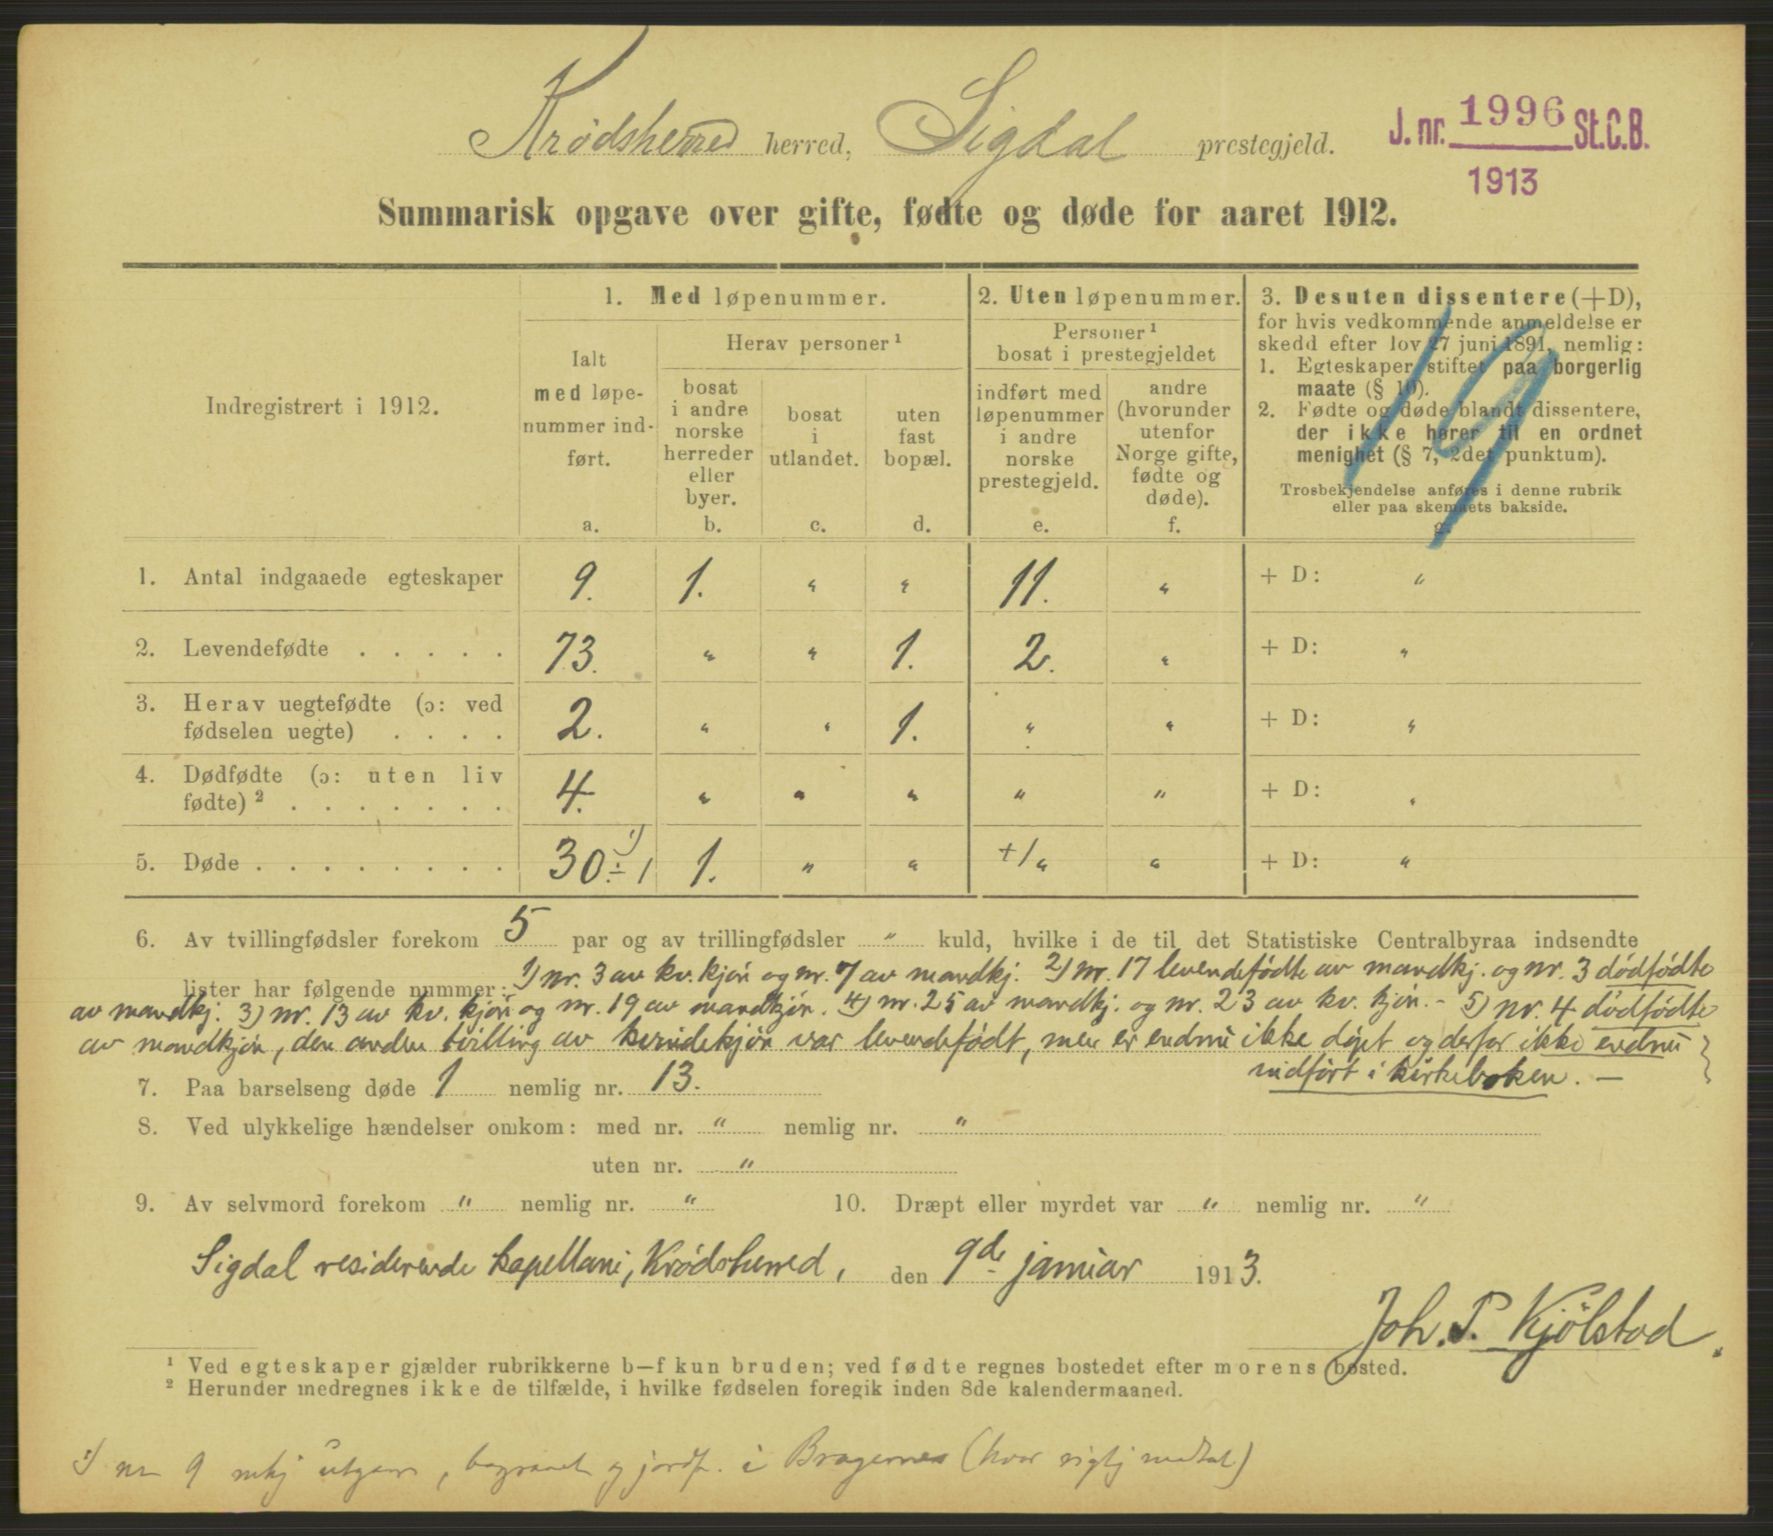 Krødsherred herred, Sigdal prestegjeld.
J. nr. 1996 St.C.B.
1913
Summarisk opgave over gifte, fødte og døde for aaret 1912.
Indregistrert i 1912.
1. Med løpenummer.
Ialt med løpe-
nummer ind-
ført.
a.
Herav personer ¹
bosat
i andre
norske
herreder
eller
byer.
b.
bosat
i
utlandet.
c.
uten
fast
bopæl.
d.
2. Uten løpenummer.
Personer ¹
bosat i prestegjeldet
indført med
løpenummer
i andre
norske
prestegjeld.
e.
andre
(hvorunder
utenfor
Norge gifte,
fødte og
døde).
f.
3. Desuten dissentere (+D),
for hvis vedkommende anmeldelse er
skedd efter lov 27 juni 1891, nemlig:
1. Egteskaper stiftet paa borgerlig
maate (§ 10).
2. Fødte og døde blandt dissentere,
der ikke hører til en ordnet
menighet (§ 7, 2det punktum).
Trosbekjendelse anføres i denne rubrik
eller paa skemaets bakside.
g.
19
1. Antal indgaaede egteskaper 9. 1. " " 11. " + D: "
2. Levendefødte . . . . . 73. " " 1. 2. " + D: "
3. Herav uegtefødte (ɔ: ved
fødselen uegte) . . . . 2. " " 1. " " + D: "
4. Dødfødte (ɔ: uten liv
fødte) ² . . . . . . . 4. " " " " " + D: "
5. Døde . . . . . . . . 30 ÷ 1 ¹) 1. " " +1 " " + D: "
6. Av tvillingfødsler forekom 5 par og av trillingfødsler " kuld, hvilke i de til det Statistiske Centralbyraa indsendte
lister har følgende nummer: 1) nr. 3 av kv. kjøn og nr. 7 av mandkj. 2) nr. 17 levendefødte av mandkj. og nr. 3 dödfödte
av mandkj. 3) nr. 13 av kv. kjøn og nr. 19 av mandkjøn. 4) nr. 25 av mandkj. og nr. 23 av kv. kjøn. – 5) nr. 4 dödfödte
av mandkjøn, den anden tvilling av kvindekjøn var levendefødt, men er endnu ikke døpt og derfor ikke endnu
indført i kirkeboken. –
7. Paa barselseng døde 1 nemlig nr. 13.
8. Ved ulykkelige hændelser omkom: med nr. " nemlig nr. "
uten nr. "
9. Av selvmord forekom " nemlig nr. " 10. Dræpt eller myrdet var " nemlig nr. "
Sigdal residerende kapellani, Krödsherred, den 9de januar 1913.
Joh. P. Kjölstad.
¹ Ved egteskaper gjælder rubrikkerne b—f kun bruden; ved fødte regnes bostedet efter morens bosted.
² Herunder medregnes ikke de tilfælde, i hvilke fødselen foregik inden 8de kalendermaaned.
¹) nr 9 mkj utgaar, begravet og jordf. i Bragernes (hvor rigtig medtat)